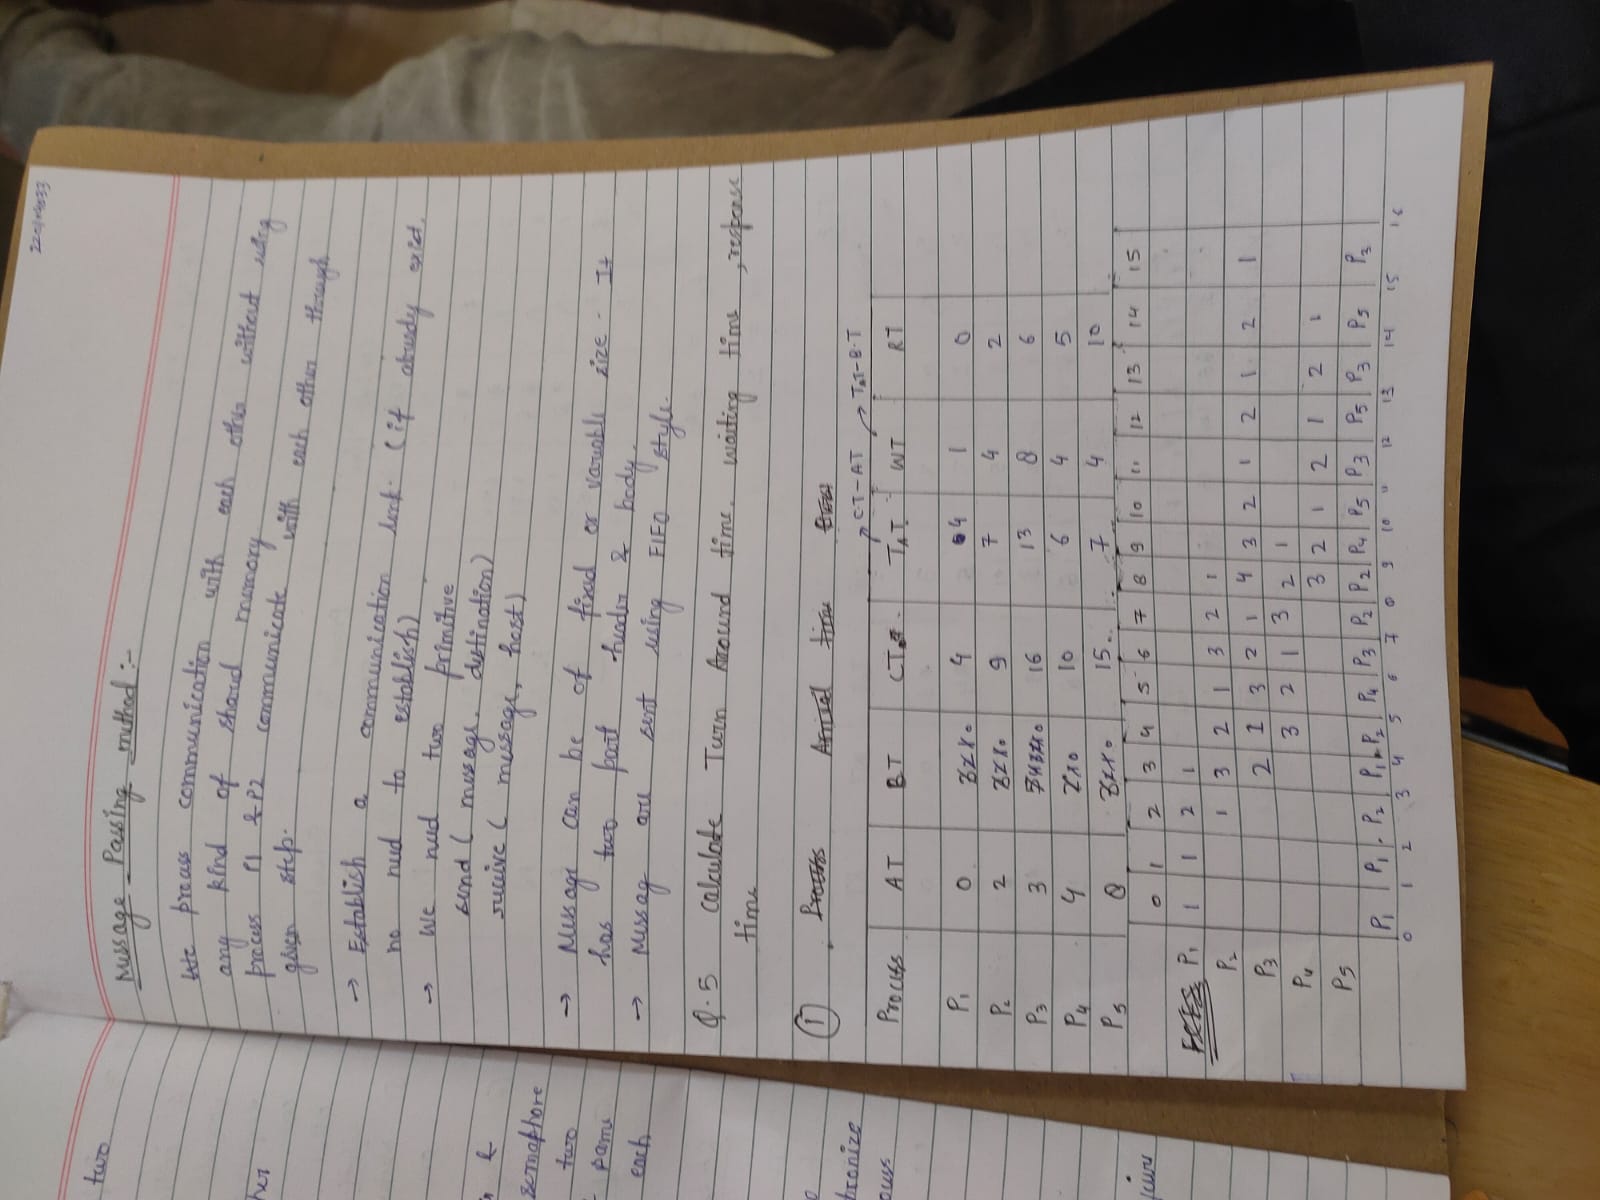 two
her
&
semaphore
two
same
each
hronize
220104033
Message Passing method :-
process communication with each other without using
any kind of shared memory
process P1 & P2 communicate with each other through
given step.
→ Establish a communication link. (if already exist.
no need to establish)
→ We need two primitive
send ( message, destination)
receive ( message, host)
→ Message can be of fixed or variable size. It
has two part header & body.
→ Messag are sent using FIFO style.
Q.5 Calculate Turn Around time, waiting time, response
time
① Process Arrival time
CT-AT TAT-B.T
Process AT BT CT TAT WT RT
P1 0 3210 4 4 1 0
P2 2 3210 9 7 4 2
P3 3 543210 16 13 8 6
P4 4 210 10 6 4 5
P5 8 3210 15 7 4 10
0 1 2 3 4 5 6 7 8 9 10 11 12 13 14 15
FCFS P1 1 1 2 1
P2 1 3 2 1 3 2 1
P3 2 1 3 2 1 4 3 2 1 2 1 2 1
P4 3 2 1 3 2 1
P5 3 2 1 2 1 2 1
P1 P1 P2 P1 P2 P4 P3 P2 P2 P4 P5 P3 P5 P3 P5 P3
0 1 2 3 4 5 6 7 8 9 10 11 12 13 14 15 16